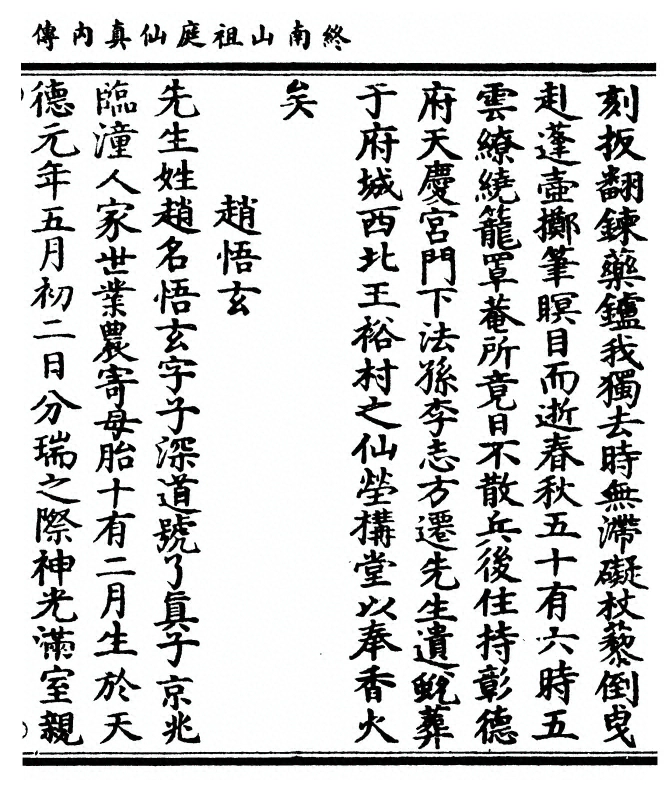 終南山祖庭仙真內傳
刻扳翻鍊藥鑪我獨去時無滯礙杖藜倒曳
赴蓬壺擲筆瞑目而逝春秋五十有六時五
雲繚繞籠罩菴所竟日不散兵後住持彰德
府天慶宮門下法孫李志方遷先生遺蛻葬
于府城西北王裕村之仙塋搆堂以奉香火
矣
趙悟玄
先生姓趙名悟玄字子深道號了真子京兆
臨潼人家世業農寄母胎十有二月生於天
德元年五月初二日分瑞之際神光滿室親